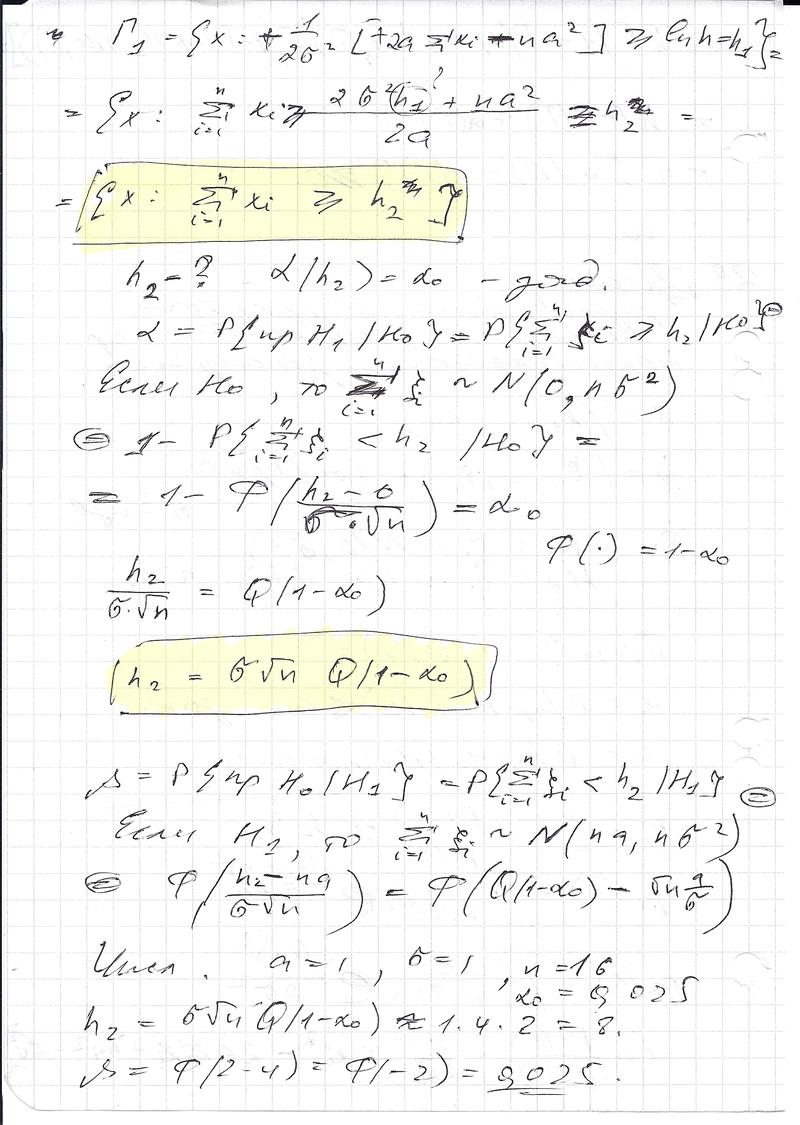 Γ₁ = {x: + 1/2σ² [+2a Σxi - na²] ≥ ln h = h₁} =
= {x: Σ_{i=1}^{n} xi ≥ (2σ²(h₁)? + na²)/2a ≡ h₂ =
= {x: Σ_{i=1}^{n} xi ≥ h₂}
h₂ - ? α(h₂) = α₀ -
α = P{пр H₁ | H₀} = P{Σ_{i=1}^{n} ξi ≥ h₂ | H₀} ⊜
Если H₀, то Σ_{i=1}^{n} ξi ~ N(0, nσ²)
⊜ 1 - P{Σ_{i=1}^{n} ξi < h₂ | H₀} =
= 1 - Φ((h₂ - 0)/(σ·√n)) = α₀
Φ(·) = 1-α₀
h₂/(σ·√n) = Q(1-α₀)
(h₂ = σ√n Q(1-α₀))
β = P{пр H₀ | H₁} = P{Σ_{i=1}^{n} ξi < h₂ | H₁} ⊜
Если H₁, то Σ_{i=1}^{n} ξi ~ N(na, nσ²)
⊜ Φ((h₂ - na)/(σ√n)) = Φ(Q(1-α₀) - √n a/σ)
Числ. a = 1, σ = 1, n = 16
α₀ = 0,025
h₂ = σ√n Q(1-α₀) ≈ 1·4·2 = 8.
β = Φ(2-4) = Φ(-2) = 0,025.